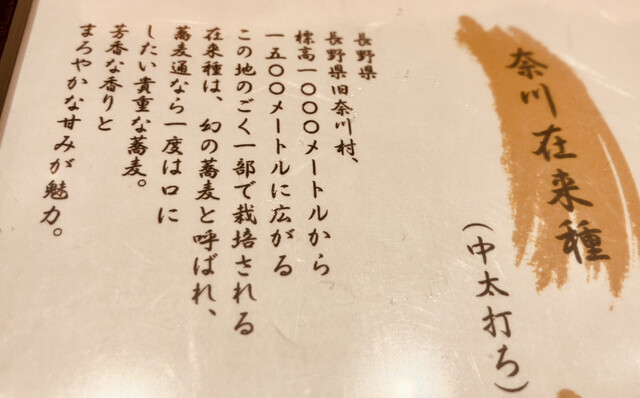 奈川在来種
(中太打ち)
長野県
長野県旧奈川村、
標高一〇〇〇メートルから
一五〇〇メートルに広がる
この地のごく一部で栽培される
在来種は、幻の蕎麦と呼ばれ、
蕎麦通なら一度は口に
したい貴重な蕎麦。
芳香な香りと
まろやかな甘みが魅力。